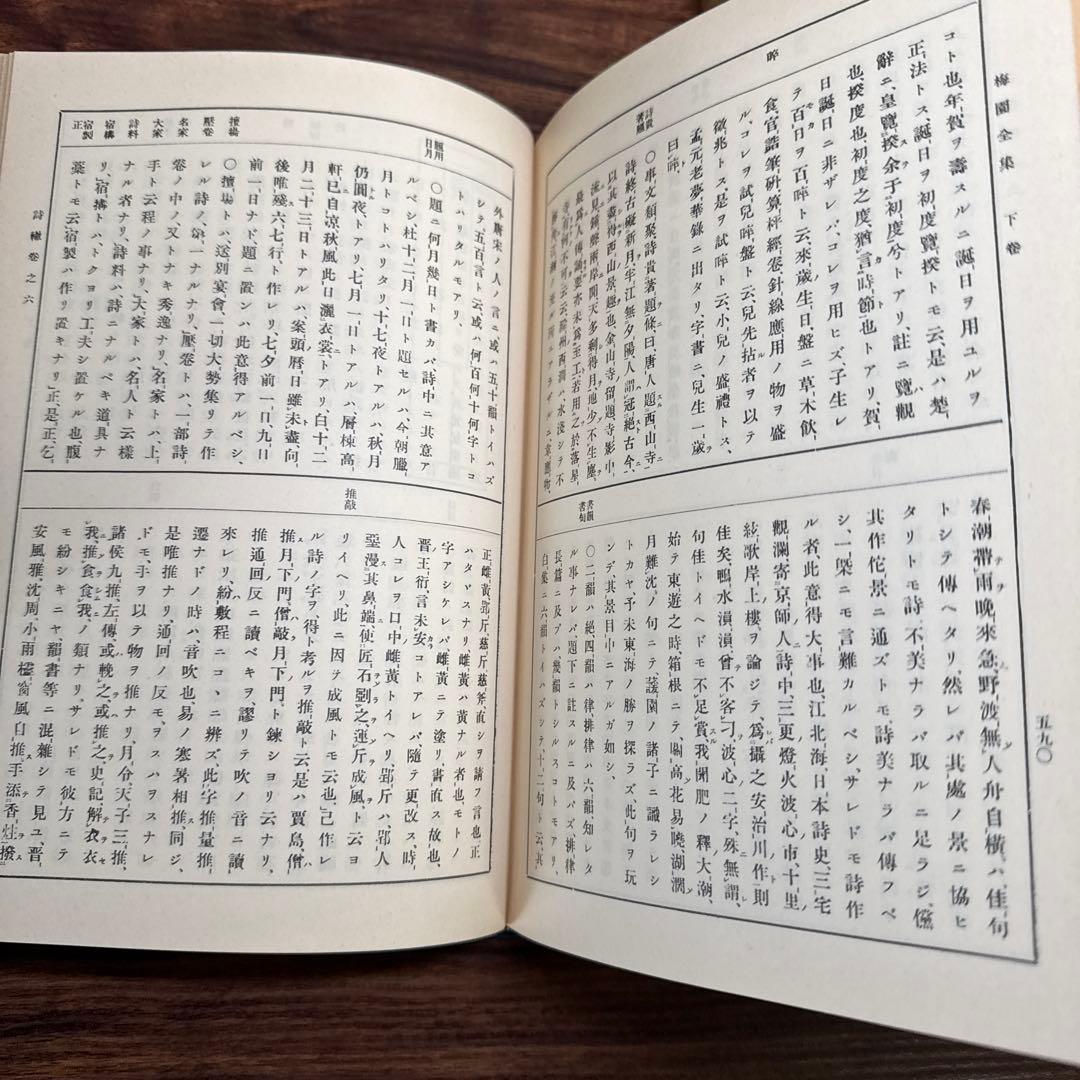 梅園全集 下卷
五九〇
晬
コト也、年賀ヲ壽スルニ誕日ヲ用ユルヲ
正法トス、誕日ヲ初度覽揆トモ云、是ハ楚
辭ニ、皇覽揆余于初度兮トアリ、註ニ覽觀
也、揆度也初度之度猶言時節也トアリ、賀
日誕日ニ非ザレバ、コレヲ用ヒズ、子生レ
テ百日ヲ百晬ト云、來歲生日、盤ニ草木飲
食、官誥筆硏算枰經卷、針線應用ノ物ヲ盛
ル、コレヲ試兒晬盤ト云、兒先拈者ヲ以テ
徵兆トス、是ヲ試晬ト云、小兒ノ盛禮トス、
孟元老夢華錄ニ出タリ、字書ニ、兒生一歲
曰晬、
詩貴
著題
〇事文類聚詩貴著題條、曰唐人題西山寺
詩終古礙新月、半江無夕陽、人謂冠絕古今、
以其盡得西山景趣也、金山寺留題、寺影中
流見、鐘聲兩岸聞、天多剩得月、地少不生塵、
最爲人傳誦、要亦未爲至工、若用之於落星
春潮帶雨晚來急、野渡無人舟自橫、ハ、佳句
トシテ傳ヘタリ、然レバ其處ノ景ニ協ヒ
タリトモ詩、不美ナラバ取ルニ足ラジ、儻
其作佗景ニ通ズトモ、詩美ナラバ傳フベ
シ、一槩ニモ言難カルベシ、サレドモ詩作
ル者、此意得大事也、江北海、日本詩史、三宅
觀瀾寄京師人詩中、三更燈火波心市、十里
絃歌岸上樓、ヲ論ジテ、爲攝之安治川作則
佳矣、鴨水湏湏、曾不客刁、波心二字、殊無謂、
句佳トイヘドモ不足賞、我聞肥ノ釋大潮、
始テ東遊之時、箱根ニテ、關高花易曉、湖濶
月難沈、ノ句ニテ、蘐園ノ諸子ニ識ラレシ
トカヤ、予未東海ノ勝ヲ探ラズ、此句ヲ玩
ンデ、其景目中ニアルガゴトシ、
書韻
書句
〇二韻ハ絕、四韻ハ律、排律ハ六韻、知レタ
ル事ナレバ、題下ニ註スルニ及バズ、排律
長篇ニ及ブハ、幾韻トシルスコトモアリ、
白集ニ六韻トイハズシテ、十二句ト云、其
外唐宋ノ人ノ言ニ或ハ五十韻トイハズ
シテ、五百言ト云、或ハ何百何十何字トコ
トハリタルモアリ、
題用
日月
〇題ニ何月幾日ト書カバ、詩中ニ其意ア
ルベシ、杜十二月一日ト題セルハ、今朝臘
月トコトハリタリ、十七夜トアルハ、秋月
仍圓夜トアリ、七月一日トアルハ、層棟高
軒已自凉、秋風此日灑衣裳、トアリ、白十二
月二十三日トアルハ、案頭曆日雖未盡、向
後唯殘六七行、ト作レリ、七夕前一日、九日
前一日、ナド題ニ置シハ、此意得アルベシ、
擅塲
〇擅場トハ、送別宴會、一切大勢集リテ作
壓卷
レル詩ノ、第一ナルナリ、壓卷トハ、一部詩
名家
卷ノ中ノ、又トナキ秀逸ナリ、名家トハ、上
大家
手ト云程ノ事ナリ、大家トハ、名人ト云樣
詩料
ナル者ナリ、詩料ハ詩ニナルベキ道具ナ
宿搆
リ、宿搆トハ、トクヨリ工夫シ置ケル也、腹
宿製
正
藁トモ云、宿製ハ作リ置キナリ、正、是正乞
正、雌黃、郢斤、慈斤、慈斧、直シヲ請フ言也、正
ハタヾスナリ、雌黃ハ黃ナル者也、モトノ
字アシケレバ、雌黃ニテ塗リ、書直ス故也、
晉王衍、言未安コトアレバ、隨テ更改ス、時
人コレヲ口中雌黃トイヘリ、郢斤ハ、郢人
堊漫其鼻端、使匠石斲之、運斤成風、ト云ヨ
リイヘリ、此ニ因テ成風トモ云也、己作レ
推敲
ル詩ノ字ヲ得ト考ルヲ推敲ト云、是ハ賈島僧
推月下門、僧敲月下門、ト鍊シヨリ云ナリ、
推通回反ニ讀ベキヲ、謬リテ吹ノ音ニ讀
來レリ、紛敷程ニコヽニ辨ズ、此字推量推
遷ナドノ時ハ、音吹也、易ノ寒暑相推、同ジ、
是唯推ナリ、通回ノ反モ、ヲスハヲスナレ
ドモ、手ヲ以テ物ヲ推ナリ、月令、天子三推、
諸侯九推、左傳、或輓之或推之、史記、解衣衣
我、推食食我、ノ類ナリ、サレドモ彼方ニテ
モ紛シキニヤ、韻書等ニ混雜シテ見ユ、晉、
安風雅、沈周、小雨櫺窗風自推、手添香炷撥
詩轍卷之六